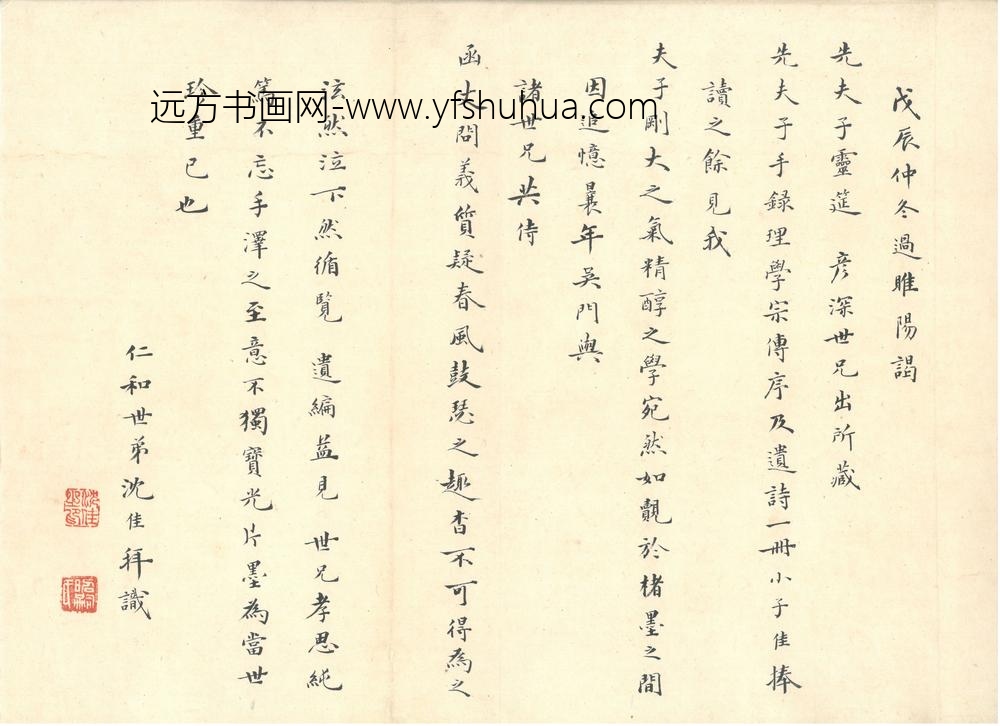 戊辰仲冬過睢陽謁
先夫子靈筵　彦深世兄出所藏
先夫子手録理學宗傳序及遺詩一冊小子佳捧
讀之餘見我
夫子剛大之氣精醇之學宛然如覿於楮墨之間
因追憶曩年吳門與
諸世兄共侍
函丈問義質疑春風鼓瑟之趣杳不可得為之
泫然泣下然循覽　遺編益見　世兄孝思純
篤不忘手澤之至意不獨寶光片墨為當世
珍重已也
仁和世弟沈佳拜識
远方书画网-www.yfshuhua.com